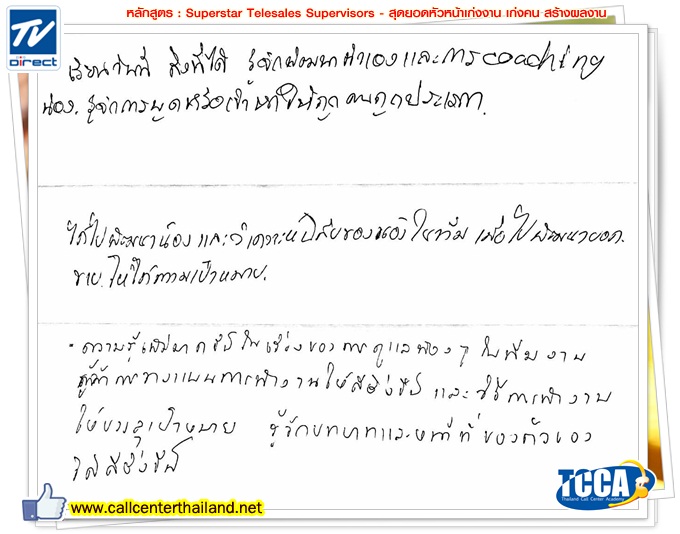 หลักสูตร : Superstar Telesales Supervisors - สุดยอดหัวหน้าเก่งงาน เก่งคน สร้างผลงาน
TV
DIRECT
เรียนวันนี้ สิ่งที่ได้ รู้จักพัฒนาตัวเองและการ coaching
น้อง. รู้จักการพูดหรือเข้าหาให้ถูกคนถูกประเภท.
ได้ไปพัฒนาน้อง และวิเคราะห์นิสัยของน้องในทีม เพื่อไปพัฒนายอด
ขาย. ให้ได้ตามเป้าหมาย.
- ความรู้เพิ่มมากขึ้นในเรื่องของการดูแลน้อง ๆ ในทีมงาน
รู้จักการวางแผนการทำงานให้ดียิ่งขึ้น และวิธีการทำงาน
ให้บรรลุเป้าหมาย รู้จักบทบาทและหน้าที่ของตัวเอง
ได้ดียิ่งขึ้น
TCCA
Thailand Call Center Academy
www.callcenterthailand.net